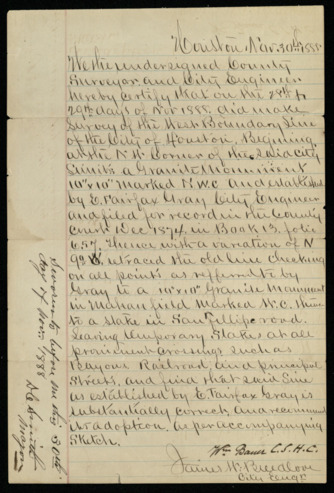 Houston Nov. 30th 1888
We the undersigned County
Surveyor and City Engineer
hereby certify that on the 28th &
29th days of Nov 1888. did make
Survey of the West Boundary Line
of the City of Houston, Begining
at the N.W. Corner of the Said City
Limits a Granite Monument
10"x10" Marked N.W.C. and established
by E. Fairfax Gray City Engineer
and filed for record in the County
Court Dec 1874 in Book 13. folio
657. Thence with a variation of N
retraced the old line checking
on all points as referred to by
Gray to a 10"x10" Granite Monument
in Mahan field Marked W.C. thence
to a stake in San Fillipe road.
Leaving temporary Stakes at all
prominent Crossings such as
Bayous Railroad, and principal
Streets, and find that said Line
as established by E. Fairfax Gray is
substantially correct, and recommend
its adoption, as per accompanying
Sketch.
Wm Bauer C.S.H.C.
James W.
City Engr.
Sworn to before me this 30th
day of Nov 1888 D.C. Smith
Mayor